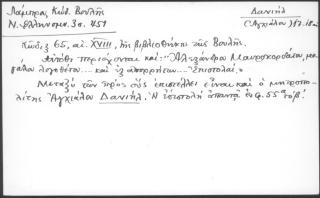 Λάμπρος, Κώδ. Βουλής
Ν. Ελληνομν. 3ος. 451
Δανιήλ
(Αγχιάλου)
Κώδιξ 65, αι. XVIII, της βιβλιοθήκης της Βουλής.
Αυτόθι περιέχονται και: "Αλεξάνδρου Μαυροκορδάτου, με-
γάλου λογοθέτου... και εξ απορρήτων... Επιστολαί."
Μεταξύ των προς ους επιστέλλει είναι και ο μητροπο-
λίτης Αγχιάλου Δανιήλ. Η επιστολή απαντά εν φ. 55α το β'.